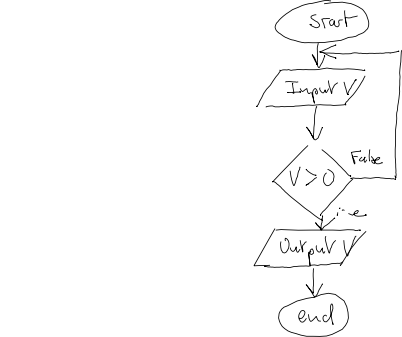 Start
Input V
False
V>0
Output V
end